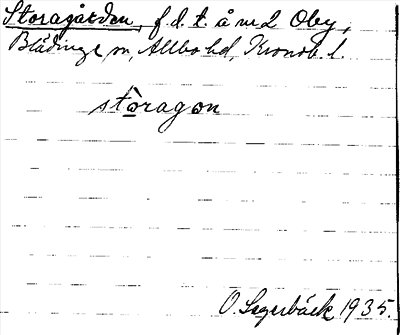 Storagården, f.d. t. å n:o 2 Oby,
Blädinge sn, Allbo hd, Kronob. l.
stòragọn
O. Sagerbäck 1935.